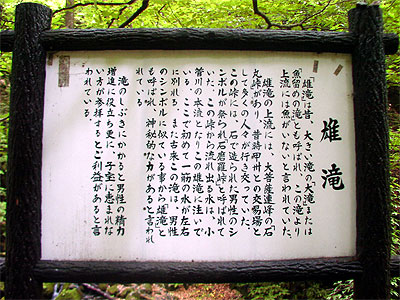 雄滝
「雄滝は昔、大きい滝の大滝または
魚留めの滝とも呼ばれ、この滝より
上流には魚がいないと言われていた。
雄滝の上流には、大菩薩連峰の石
丸峠があり、昔時甲州との交易場と
して多くの人々が行き交っていた。
この峠には、石で造られた男性のシ
ンボルが祭られ石磨羅峠と呼ばれて
いる。この峠から流れ出る水は、小
菅川の本流となりこの雄滝に注いで
いる。ここで初めて一筋の水が左右
に別れる。また古来この滝は、男性
のシンボルに似ている事から雄滝と
も呼ばれ、神秘的な力があると言われ
れている。
滝のしぶきにかかると男性の精力
増進に役立ち更に、子宝に恵まれな
い方が参拝するとご利益があると言
われている。